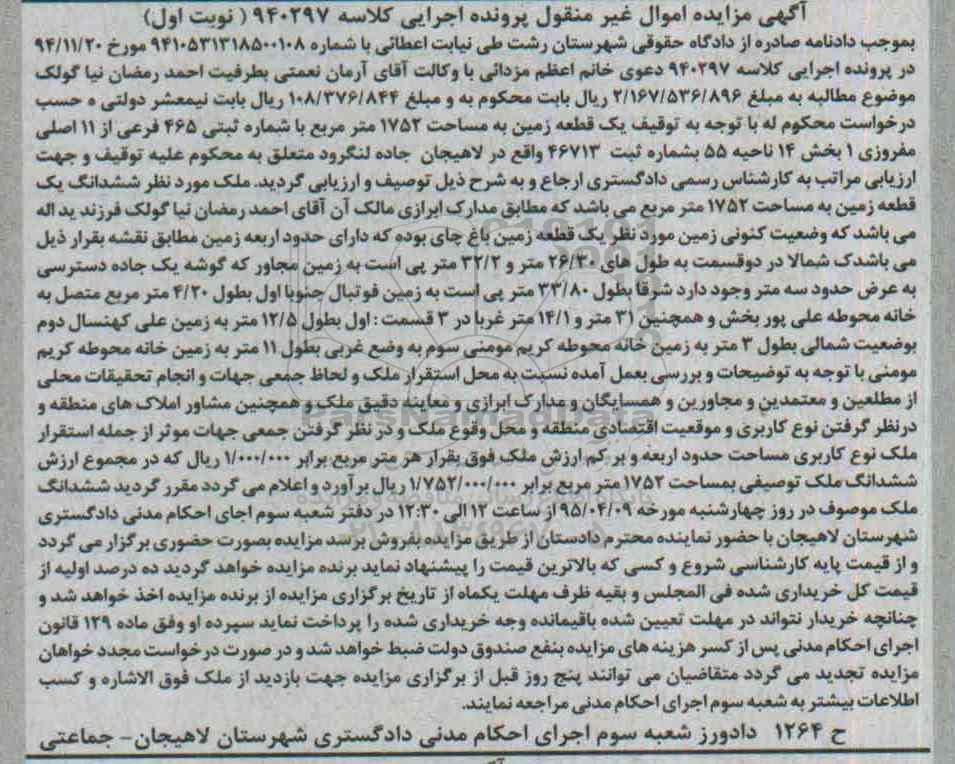 آگهی مزایده اموال غیر منقول پرونده اجرایی کلاسه ۹۴۰۲۹۷ ( نوبت اول)
بموجب دادنامه صادره از دادگاه حقوقی شهرستان رشت طی نیابت اعطائی با شماره ۹۴۱۰۵۳۱۳۱۸۵۰۰۱۰۸ مورخ ۹۴/۱۱/۲۰
در پرونده اجرایی کلاسه ۹۴۰۲۹۷ دعوی خانم اعظم مزدائی با وکالت آقای آرمان نعمتی بطرفیت احمد رمضان نیا گولک
موضوع مطالبه به مبلغ ۲/۱۶۷/۵۳۶/۸۹۶ ریال بابت محکوم به و مبلغ ۱۰۸/۳۷۶/۸۴۴ ریال بابت نیمعشر دولتی ه حسب
درخواست محکوم له با توجه به توقیف یک قطعه زمین به مساحت ۱۷۵۲ متر مربع با شماره ثبتی ۴۶۵ فرعی از ۱۱ اصلی
مفروزی ۱ بخش ۱۴ ناحیه ۵۵ بشماره ثبت ۴۶۷۱۳ واقع در لاهیجان جاده لنگرود متعلق به محکوم علیه توقیف و جهت
ارزیابی مراتب به کارشناس رسمی دادگستری ارجاع و به شرح ذیل توصیف و ارزیابی گردید. ملک مورد نظر ششدانگ یک
قطعه زمین به مساحت ۱۷۵۲ متر مربع می باشد که مطابق مدارک ابرازی مالک آن آقای احمد رمضان نیا گولک فرزند ید اله
می باشد که وضعیت کنونی زمین مورد نظر یک قطعه زمین باغ چای بوده که دارای حدود اربعه زمین مطابق نقشه بقرار ذیل
می باشدک شمالا در دوقسمت به طول های ۲۶/۳۰ متر و ۳۲/۲ متر پی است به زمین مجاور که گوشه یک جاده دسترسی
به عرض حدود سه متر وجود دارد شرقا بطول ۳۳/۸۰ متر پی است به زمین فوتبال جنوبا اول بطول ۴/۲۰ متر مربع متصل به
خانه محوطه علی پور بخش و همچنین ۳۱ متر و ۱۴/۱ متر غربا در ۳ قسمت : اول بطول ۱۲/۵ متر به زمین علی کهنسال دوم
بوضعیت شمالی بطول ۳ متر به زمین خانه محوطه کریم مومنی سوم به وضع غربی بطول ۱۱ متر به زمین خانه محوطه کریم
مومنی با توجه به توضیحات و بررسی بعمل آمده نسبت به محل استقرار ملک و لحاظ جمعی جهات و انجام تحقیقات محلی
از مطلعین و معتمدین و مجاورین و همسایگان و مدارک ابرازی و معاینه دقیق ملک و همچنین مشاور املاک های منطقه و
درنظر گرفتن نوع کاربری و موقعیت اقتصادی منطقه و محل وقوع ملک و در نظر گرفتن جمعی جهات موثر از جمله استقرار
ملک نوع کاربری مساحت حدود اربعه و بر کم ارزش ملک فوق بقرار هر متر مربع برابر ۱/۰۰۰/۰۰۰ ریال که در مجموع ارزش
ششدانگ ملک توصیفی بمساحت ۱۷۵۲ متر مربع برابر ۱/۷۵۲/۰۰۰/۰۰۰ ریال بر آورد و اعلام می گردد مقرر گردید ششدانگ
ملک موصوف در روز چهارشنبه مورخه ۹۵/۰۴/۰۹ از ساعت ۱۲ الی ۱۲:۳۰ در دفتر شعبه سوم اجای احکام مدنی دادگستری
شهرستان لاهیجان با حضور نماینده محترم دادستان از طریق مزایده بفروش برسد مزایده بصورت حضوری برگزار می گردد
و از قیمت پایه کارشناسی شروع و کسی که بالاترین قیمت را پیشنهاد نماید برنده مزایده خواهد گردید ده درصد اولیه از
قیمت کل خریداری شده فی المجلس و بقیه ظرف مهلت یکماه از تاریخ برگزاری مزایده از برنده مزایده اخذ خواهد شد و
چنانچه خریدار نتواند در مهلت تعیین شده باقیمانده وجه خریداری شده را پرداخت نماید سپرده او وفق ماده ۱۲۹ قانون
اجرای احکام مدنی پس از کسر هزینه های مزایده بنفع صندوق دولت ضبط خواهد شد و در صورت درخواست مجدد خواهان
مزایده تجدید می گردد متقاضیان می توانند پنج روز قبل از برگزاری مزایده جهت بازدید از ملک فوق الاشاره و کسب
اطلاعات بیشتر به شعبه سوم اجرای احکام مدنی مراجعه نمایند.
ح ۱۲۶۴ دادورز شعبه سوم اجرای احکام مدنی دادگستری شهرستان لاهیجان- جماعتی